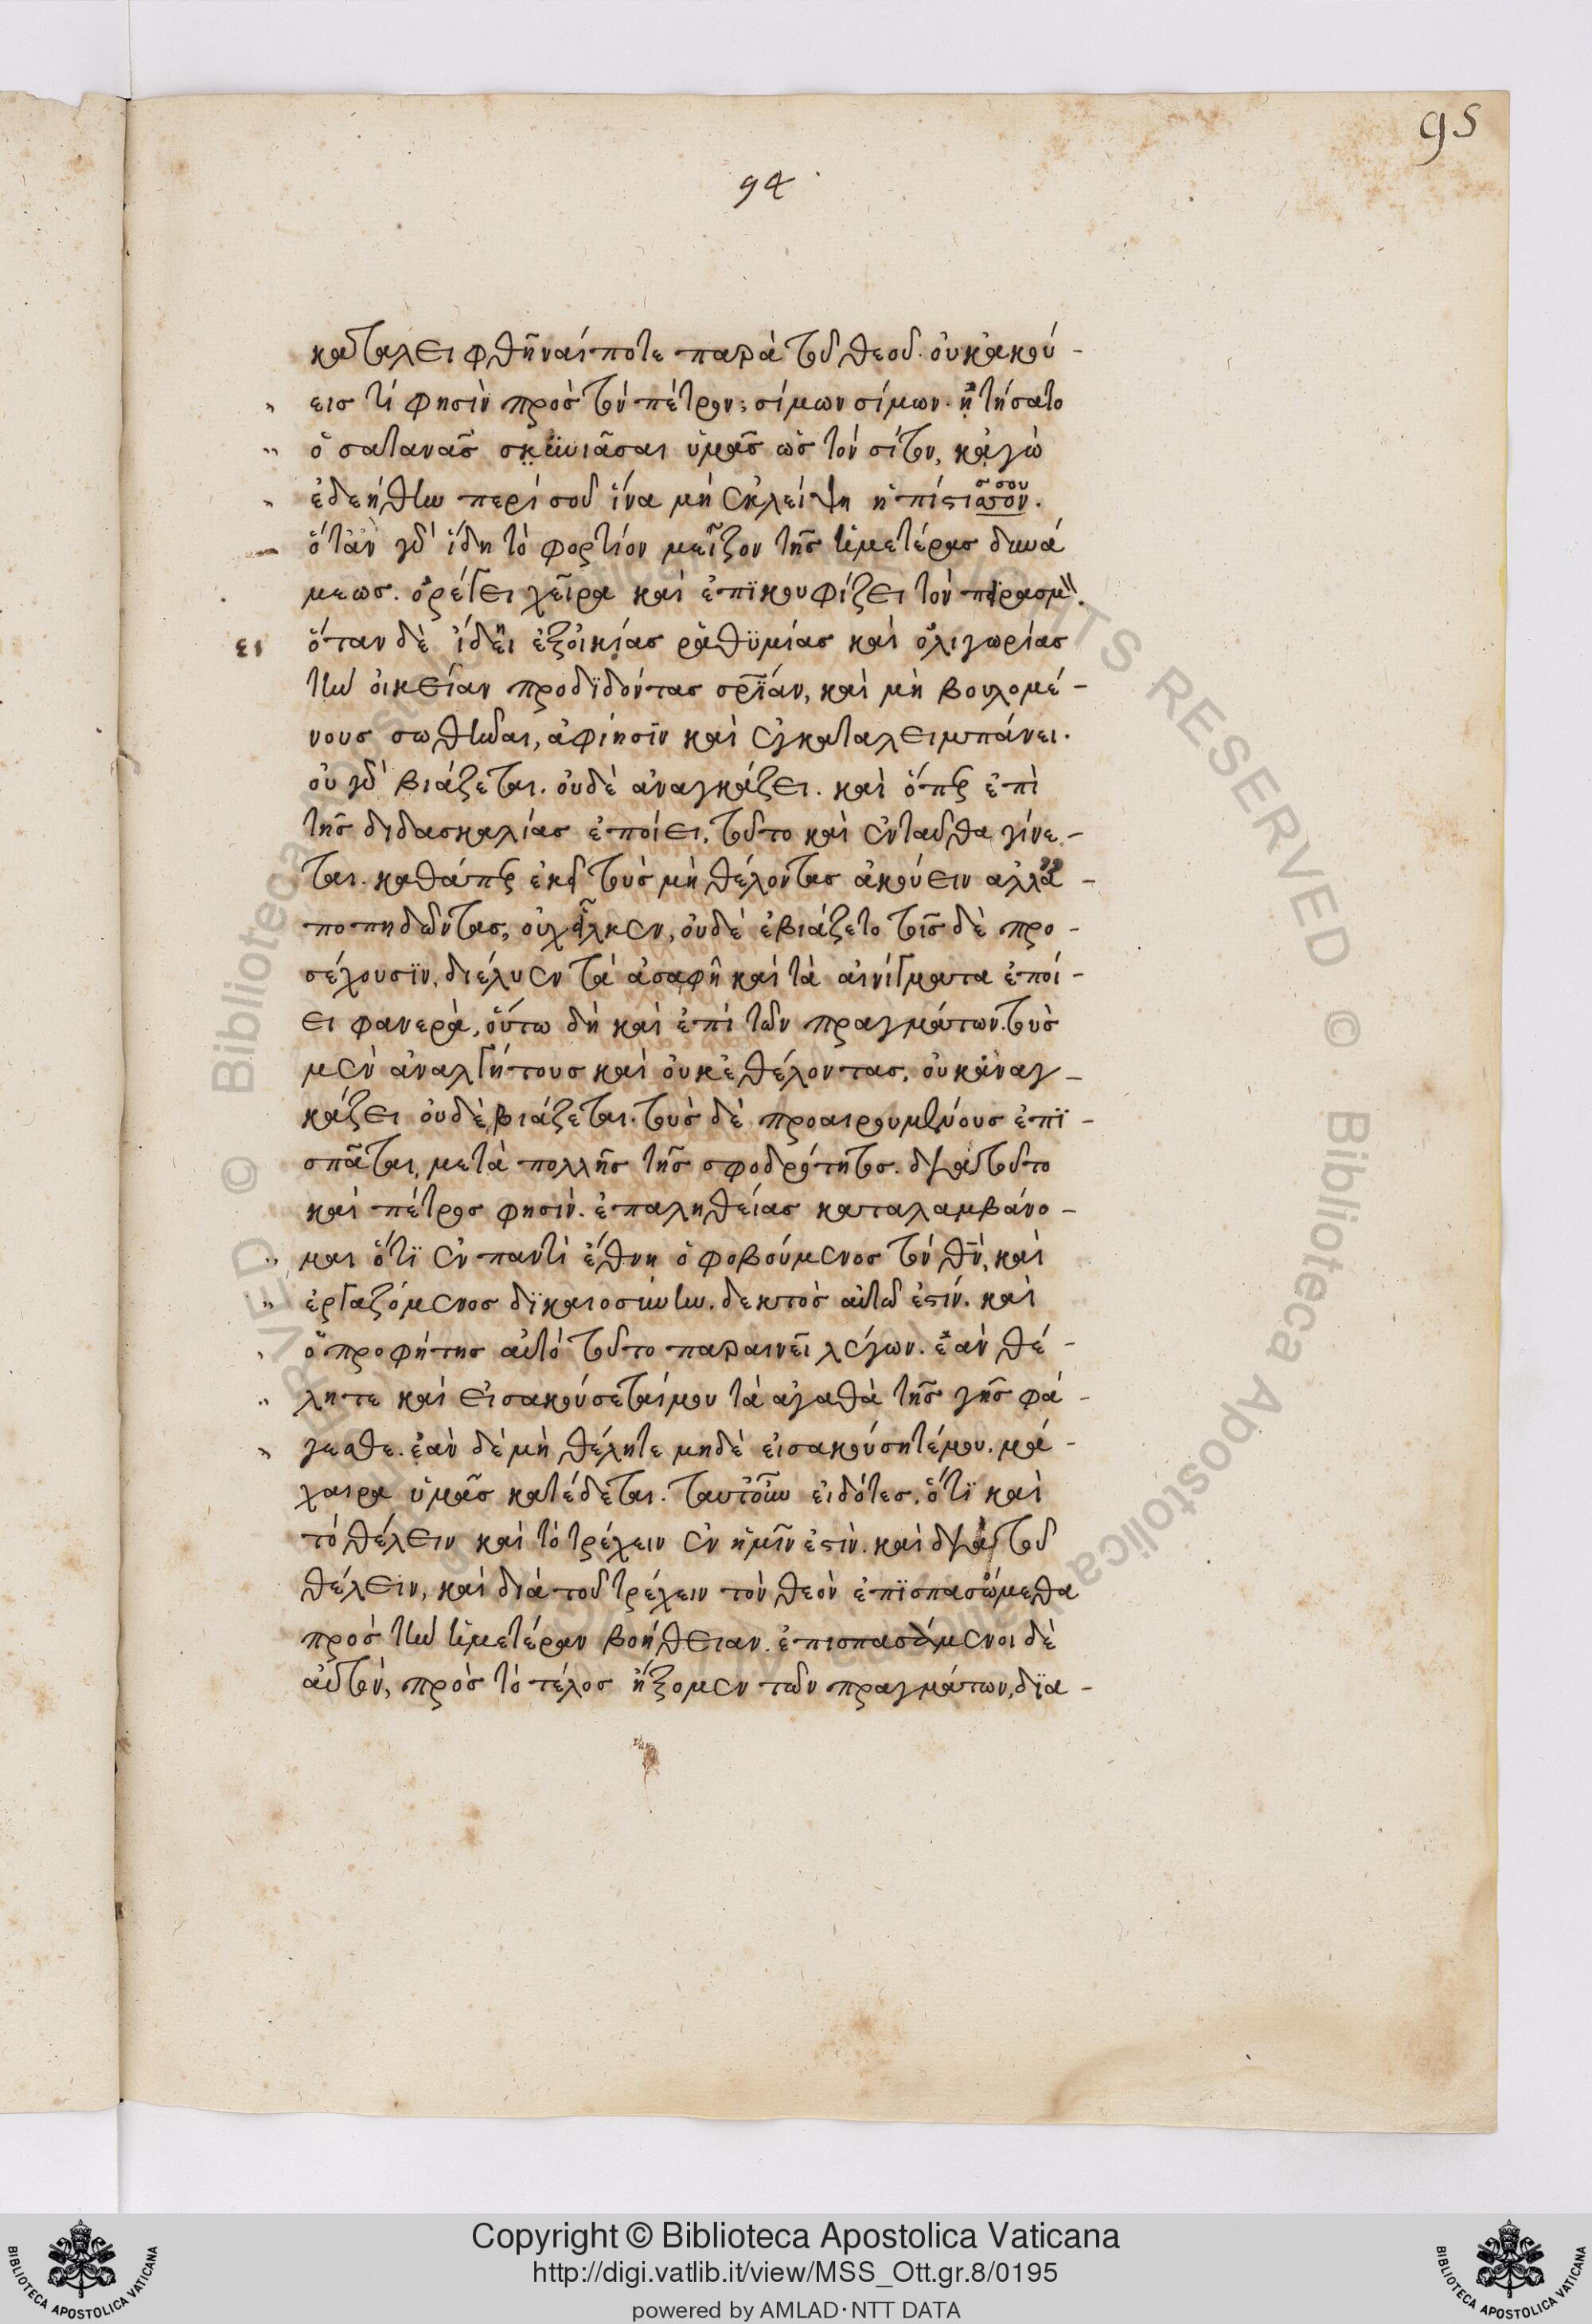 95
94
καταλειφθῆναί ποτε παρὰ τοῦ θεοῦ. οὐκ ἀκού-
εισ τί φησὶν πρὸσ τὸν πέτρον; σίμων σίμων. ἠτήσατο
ὁ σατανᾶσ σηνιᾶσαι ὑμᾶσ ὡσ τὸν σῖτον, κἀγὼ
ἐδεήθην περὶ σοῦ ἵνα μὴ ἐκλείψῃ ἡ πίστισ σου.
ὅταν γὰρ ἴδῃ τὸ φορτίον μεῖζον τῆσ ἡμετέρασ δυνά
μεωσ. ὀρέγει χεῖρα καὶ ἐπϊκουφίζει τὸν πειρασμόν.
ει ὅταν δὲ ἴδῃ ἐξ οἰκείασ ῥαθϋμίασ καὶ ὀλιγωρίασ
τὴν οἰκείαν προδϊδόντασ σρΐαν, καὶ μὴ βουλομέ-
νουσ σωθῆναι, ἀφίησϊν καὶ ἐγκαταλειμπάνει.
οὐ γὰρ βιάζεται. οὐδὲ ἀναγκάζει. καὶ ὅπερ ἐπὶ
τῆσ διδασκαλίασ ἐποίει, τοῦτο καὶ ἐνταῦθα γίνε-
ται. καθάπερ ἐκεῖ τοὺσ μὴ θέλοντασ ἀκούειν ἀλλὰ ἀ-
ποπηδῶντασ, οὐχ εἷλκεν, οὐδὲ ἐβιάζετο τοῖσ δὲ προ-
σέχουσϊν, διέλυεν τὰ ἀσαφῆ καὶ τὰ αἰνίγματα ἐποί-
ει φανερὰ, οὕτω δὴ καὶ ἐπὶ τῶν πραγμάτων. τοὺσ
μὲν ἀναλγήτουσ καὶ οὐκ ἐθέλοντασ, οὐκ ἀναγ-
κάζει οὐδὲ βιάζεται. τοὺσ δὲ προαιρουμένουσ ἐπϊ-
σπᾶται, μετὰ πολλῆσ τῆσ σφοδρότητοσ. διὰ τοῦτο
καὶ πέτροσ φησὶν. ἐπ ἀληθείασ καταλαμβάνο-
μαι ὅτϊ ἐν παντὶ ἔθνη ὁ φοβούμενοσ τὸν θν, καὶ
ἐργαζόμενοσ δϊκαιοσύνην. δεκτὸσ αὐτῶ ἐστίν. καὶ
ὁ προφήτησ αὐτὸ τοῦτο παραινεῖ λέγων. ἐὰν θέ-
λητε καὶ εἰσακούσεταί μου τὰ ἀγαθὰ τῆσ γῆσ φά-
γεσθε. ἐὰν δὲ μὴ θέλητε μηδὲ εἰσακούσητέ μου. μά-
χαιρα ὑμᾶσ κατέδεται. ταῦτ οὖν εἰδότεσ, ὅτϊ καὶ
τὸ θέλειν καὶ τὸ τρέχειν ἐν ἡμῖν ἐστὶν. καὶ διὰ τοῦ
θέλειν, καὶ διὰ τοῦ τρέχειν τὸν θεὸν ἐπϊσπασώμεθα
πρὸσ τὴν ἡμετέραν βοήθειαν. ἐπισπασάμενοι δὲ
αὐτὸν, πρὸσ τὸ τέλοσ ἥξομεν τῶν πραγμάτων, δϊα-
© Biblioteca Apostolica Vaticana
Copyright © Biblioteca Apostolica Vaticana
http://digi.vatlib.it/view/MSS_Ott.gr.8/0195
powered by AMLAD·NTT DATA
BIBLIOTECA APOSTOLICA VATICANA
BIBLIOTECA APOSTOLICA VATICANA